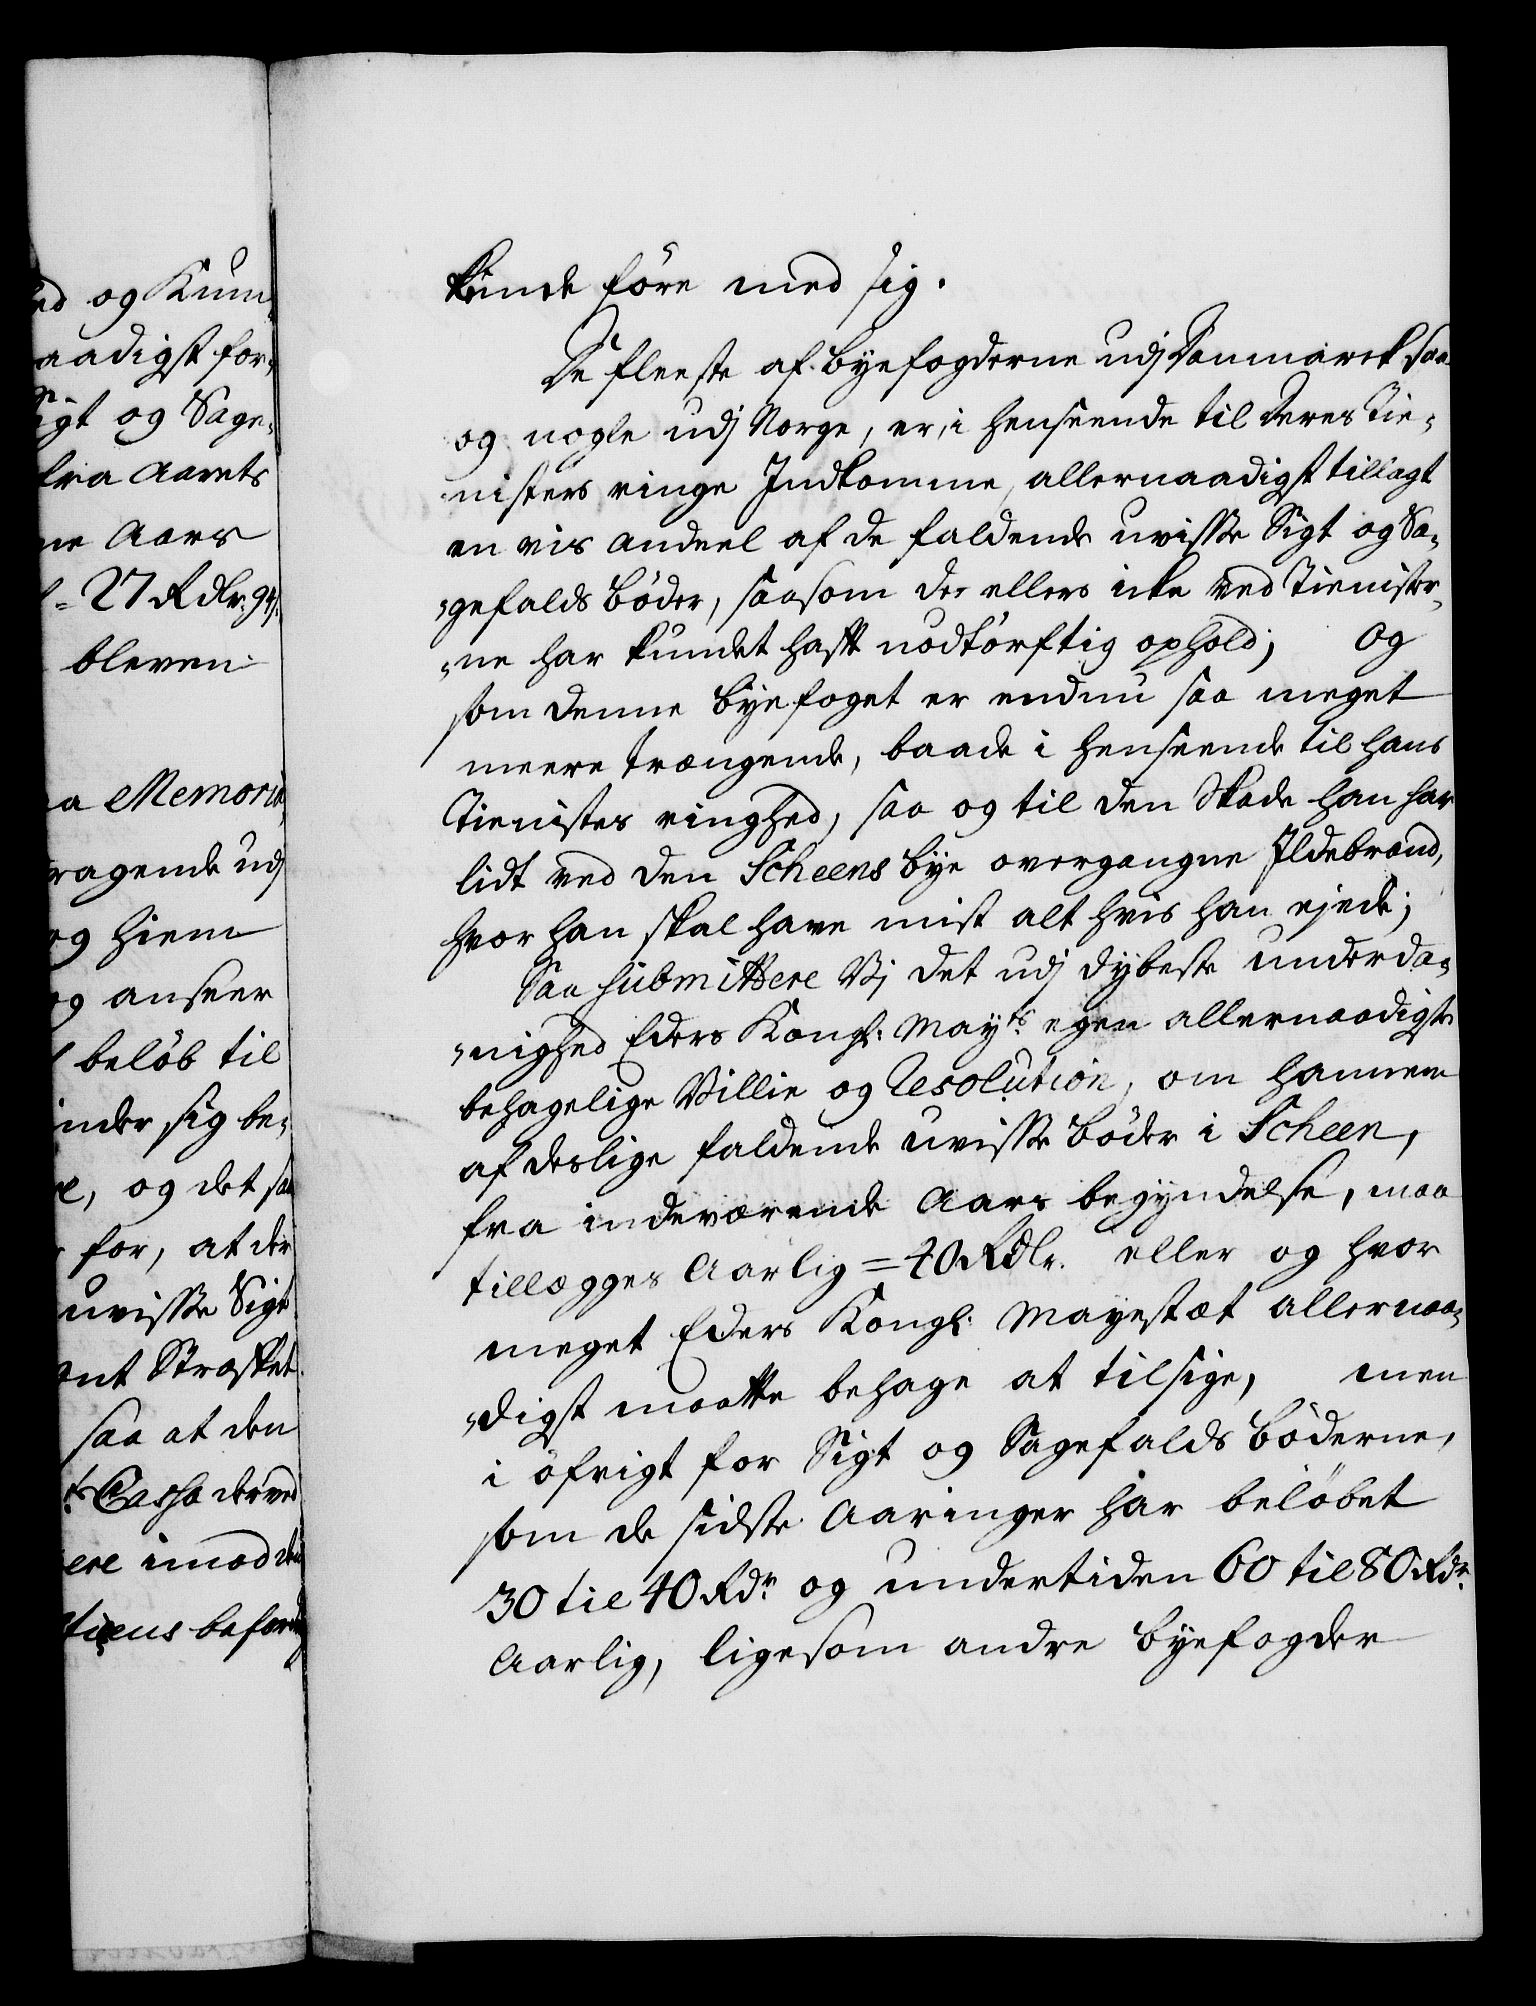 ed og Kum-
aadigst for-
Sigt og Sage-
fra Aarets
ne Aars
27 Rdlr. 94
bleven
a Memoria
ragende udj
og hiem
og anseer
beløb til
inder sig be-
e, og det saa
for, at der
uvisse Sigt
ent Strakket
saa at den
ts Cassa derved
ere imod den
tiens befor
kunde före med sig.
De fleeste af Byefogderne udj Danmarck saa
og nogle udj Norge, er, i henseende til deres Tie-
nisters ringe Indkomme, allernaadigst tillagt
en vis andeel af de faldende uvisse Sigt og Sa-
-gefalds böder, saasom de ellers icke ved Tienister-
-ne har kundet haft nodtörftig ophold; Og
som denne Byefoget er endnu saa meget
meere trængende, baade i henseende til hans
Tienistes ringhed, saa og til den Skade han har
lidt ved den Scheens bye overgangne Ildebrand,
hvor han skal have mist alt hvis han ejede;
Saa submittere Vj det udj dybeste underda-
-nighed Eders Kongl: Mayts egen allernaadigste
behagelige Villie og Resolution, om hannem
af deslige faldende uvisse böder i Scheen,
fra indeværende Aars begyndelse, maa
tillægges Aarlig = 40 Rdlr. eller og hvor
meget Eders Kongl: Mayestæt allernaa-
-digst maatte behage at tilsige, men
i öfrigt for Sigt og Sagefalds böderne,
som de sidste Aaringer har belöbet
30 til 40 Rdr og undertiden 60 til 80 Rdr.
Aarlig, ligesom andre byefogder